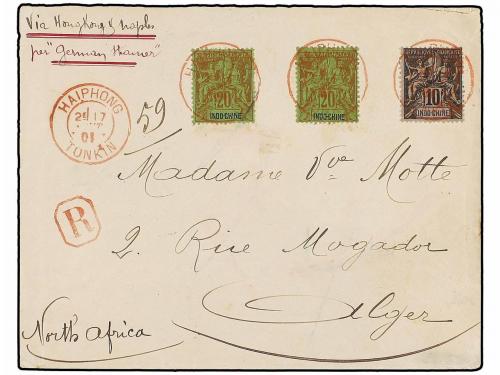 Via Hong Kong & Naples
per "German Steamer"
HAIPHONG
01
TONKIN
59
20
INDO-CHINE
20
INDO-CHINE
10
INDO-CHINE
Madame Vve Motte
R
2. Rue Mogador
Alger
North Africa